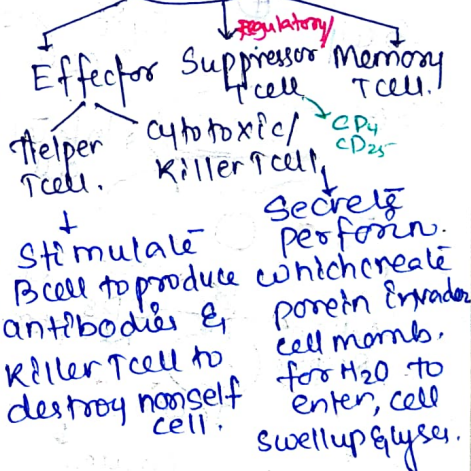 Regulatory/
Effector Suppressor Memory
T cell T cell.
CD4
CD25
Helper Cytotoxic/
T cell. Killer T cell
Stimulate
B cell to produce
antibodies &
Killer T cell to
destroy nonself
cell.
Secrete
perforin.
which create
pore in invader
cell memb.
for H2O to
enter, cell
swell up & lyses.